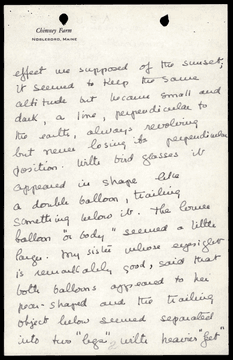 Chimney Farm
NOBLEBORO, MAINE
effect we supposed of the sunset;
it seemed to keep the same
altitude but became small and
dark, a line, perpendicular to
the earth, always revolving
but never losing its perpendicular
position. With bird glasses it
appeared in shape like
a double balloon, trailing
something below it. The lower
balloon "or body" seemed a little
larger. My sister whose eyesight
is remarkably good, said that
both balloons appeared to her
pear-shaped and the trailing
object below seemed separated
into two "legs" with heavier "feet"